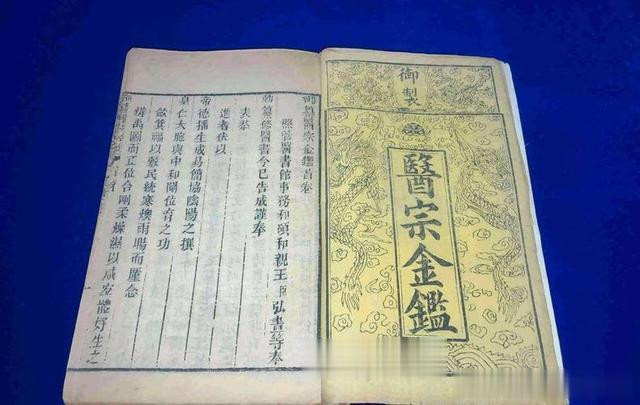 御製
醫宗金鑑
御纂醫宗金鑑首卷
照管醫書館事務和碩和親王臣弘晝等奉
勅纂修醫書今已告成謹奉
表恭
進者伏以
帝德播生成易簡協陰陽之撰
皇仁大胞與中和闡位育之功
斂箕福以敷民統寒燠雨暘而廑念
禹圖而正位合剛柔燥濕以咸宜體好生之